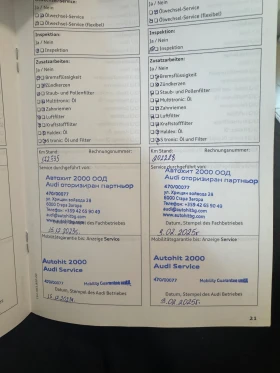 Ölwechsel-Service
Ölwechsel-Service (flexibel)
Inspektion:
Ja / Nein
Inspektion
Zusatzarbeiten:
Ja / Nein
Bremsflüssigkeit
Zündkerzen
Staub- und Pollenfilter
Multitronic: Öl
Zahnriemen
Luftfilter
Kraftstofffilter
Haldex: Öl
S tronic: Öl und Filter
Km-Stand:
Rechnungsnummer:
Service durchgeführt von:
Автохит 2000 ООД
Audi оторизиран партньор
470/00077
ул. Хрищян войвода 24
6000 Стара Загора
Телефон +359 42
www.autohitbg.com
Datum, Stempel des Fachbetriebes
Mobilitätsgarantie bis: Anzeige Service
Autohit 2000
Audi Service
470/00077
Mobility Guarantee until
Datum, Stempel des Audi Betriebes
Ölwechsel-Service
Ölwechsel-Service (flexibel)
Inspektion:
Ja / Nein
Inspektion
Zusatzarbeiten:
Ja / Nein
Bremsflüssigkeit
Zündkerzen
Staub- und Pollenfilter
Multitronic: Öl
Zahnriemen
Luftfilter
Kraftstofffilter
Haldex: Öl
S tronic: Öl und Filter
Km-Stand:
Rechnungsnummer:
Service durchgeführt von:
Автохит 2000 ООД
Audi оторизиран партньор
470/00077
6000 Стара Загора
Телефон +359 42
www.autohitbg.com
Datum, Stempel des Fachbetriebes
Mobilitätsgarantie bis: Anzeige Service
Autohit 2000
Audi Service
470/00077
Mobility Guarantee until
Datum, Stempel des Audi Betriebes
23